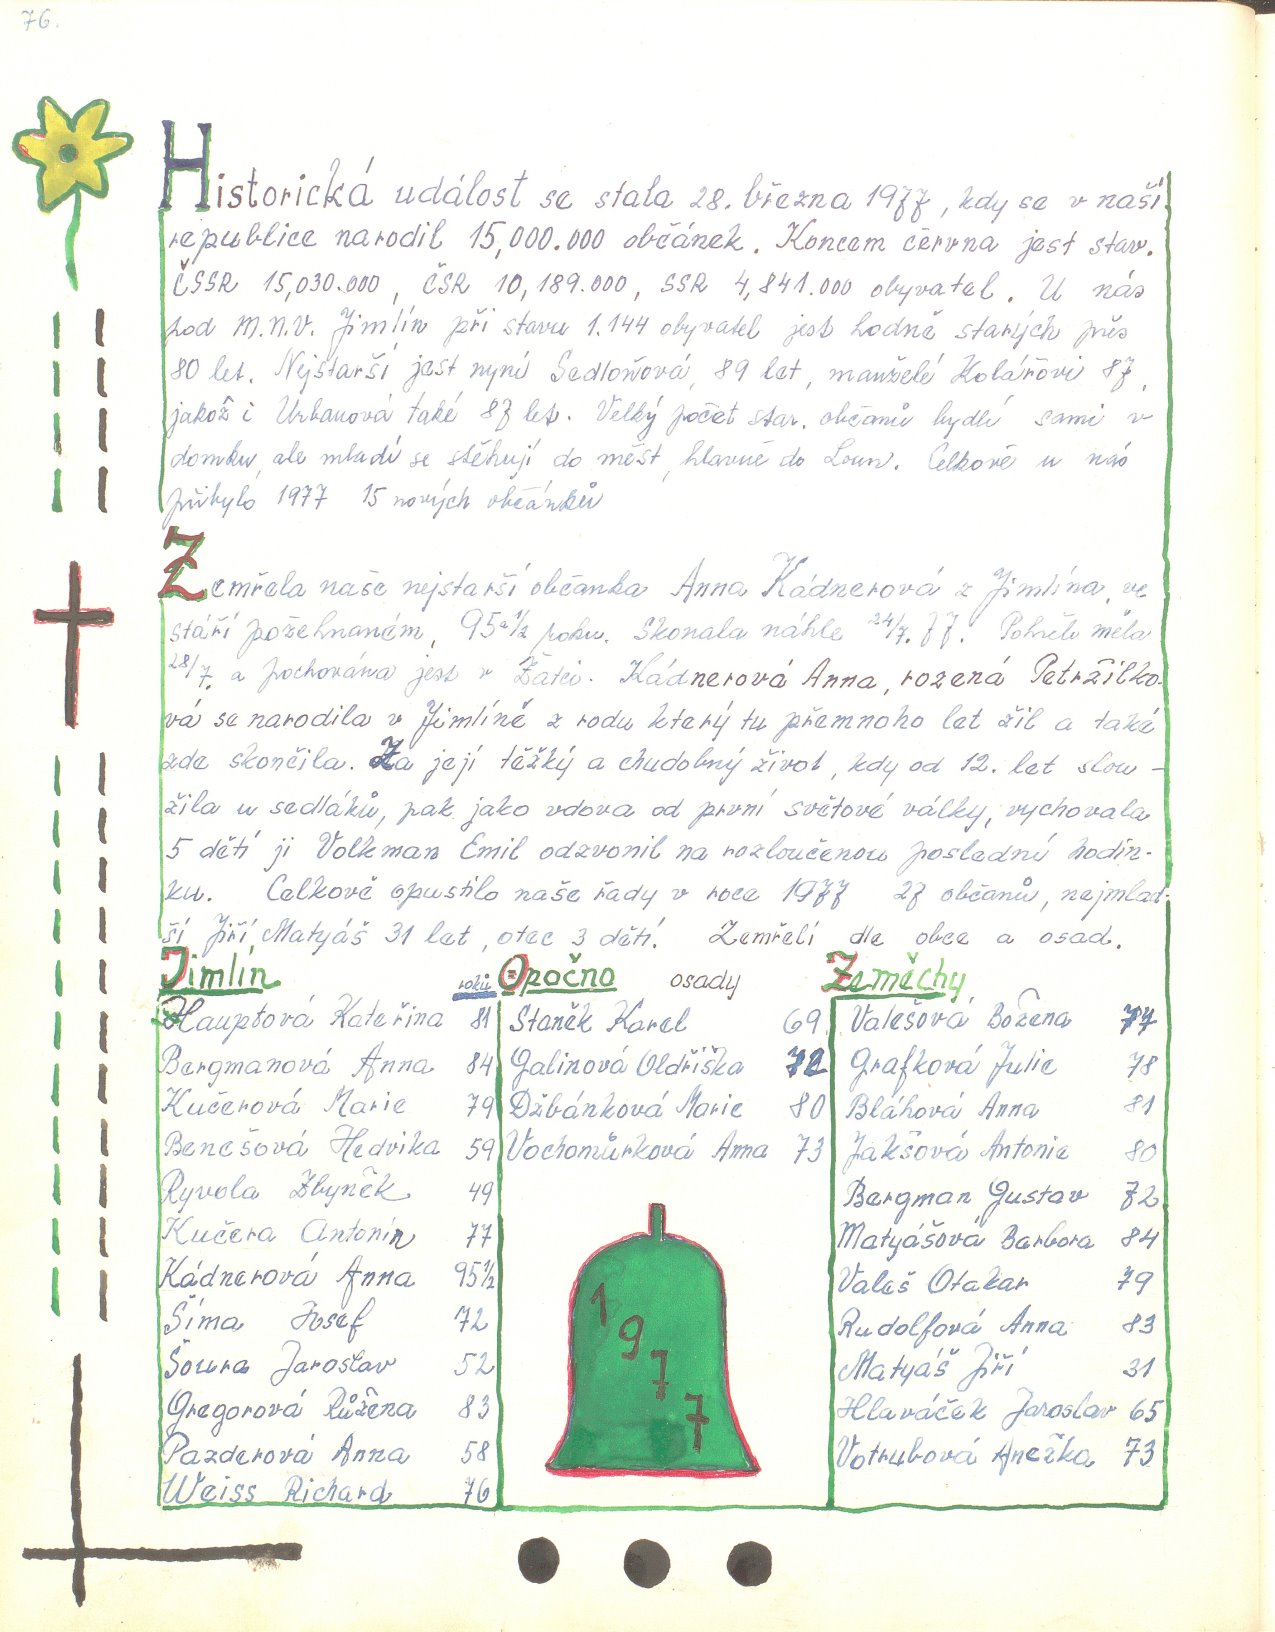 76.
Historická událost se stala 28. března 1977, kdy se v naší
republice narodil 15,000.000 občánek. Koncem června jest stav.
ČSSR 15,030.000, ČSR 10,189.000, SSR 4,841.000 obyvatel. U nás
pod M.N.V. Jimlín při stavu 1.144 obyvatel jest hodně starých přes
80 let. Nejstarší jest nyní Sedloňová, 89 let, manželé Kolářovi 87,
jakož i Urbanová také 87 let. Velký počet star. občanů bydlí sami v
domku, ale mladí se stěhují do měst, hlavně do Loun. Celkově u nás
přibylo 1977 15 nových občánků
Zemřela naše nejstarší občanka Anna Kádnerová z Jimlína, ve
stáří požehnaném, 95 a 1/2 roku. Skonala náhle 24/7. 77. Pohřeb měla
28/7. a pochována jest v Žatci. Kádnerová Anna, rozená Petržilko-
vá se narodila v Jimlíně z rodu který tu přemnoho let žil a také
zde skončila. Za její těžký a chudobný život, kdy od 12. let slou-
žila u sedláků, pak jako vdova od první světové války, vychovala
5 dětí ji Volkman Emil odzvonil na rozloučenou poslední hodin-
ku. Celkově opustilo naše řady v roce 1977 27 občanů, nejmlad-
ší Jiří Matyáš 31 let, otec 3 dětí. Zemřelí dle obce a osad.
Jimlín roků Opočno osady Zeměchy
Hauptová Kateřina 81 Staněk Karel 69 Valešová Božena 77
Bergmanová Anna 84 Galinová Oldřiška 72 Grafková Julie 78
Kučerová Marie 79 Džbánková Marie 80 Bláhová Anna 81
Benešová Hedvika 59 Vochomůrková Anna 73 Jakšová Antonie 80
Ryvola Zbyněk 49 Bergman Gustav 72
Kučera Antonín 77 Matyášová Barbora 84
Kádnerová Anna 95 1/2 Valeš Otakar 79
Šíma Josef 72 Rudolfová Anna 83
Šoura Jaroslav 52 Matyáš Jiří 31
Gregorová Růžena 83 Hlaváček Jaroslav 65
Pazderová Anna 58 Votrubová Anežka 73
Weiss Richard 76
1977